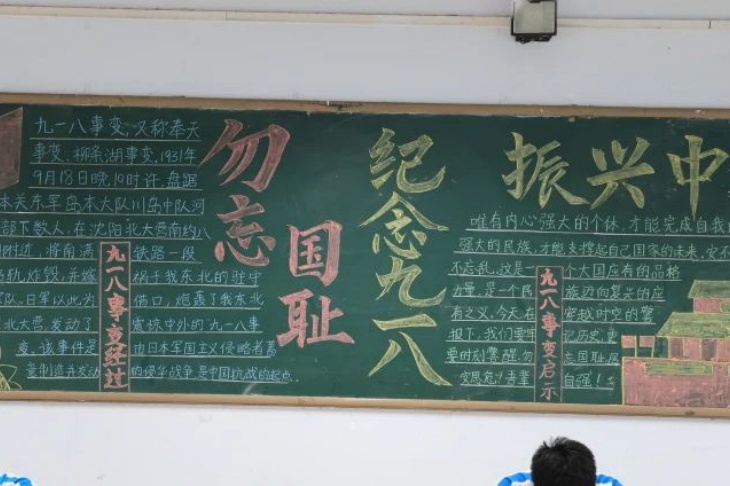 九一八事变,又称奉天
事变、柳条湖事变,1931年
9月18日晚10时许,盘踞
本关东军岛本大队川岛中队河
部下数人,在沈阳北大营南约八
附近,将南满
铁路一段
炸毁,并嫁
祸于我东北的驻中
军队,日军以此为
借口,炮轰了我东北
北大营,发动了
震惊中外的九一八事
变。该事件是
由日本军国主义侵略者蓄
意制造并发动
的侵华战争是中国抗战的起点..
九一八事变经过
勿忘
国耻
纪念九一八
振兴中
唯有内心强大的个体,才能完成自我的
强大的民族,才能支撑起自己国家的未来,安不
不忘乱,这是一
个大国应有的品格
力量,是一个民
族迈向复兴的应
有之义,今天在
穿越时空的警
报下,我们要牢
记历史,更
要时刻警醒,勿
忘国耻,居
安思危,吾辈
自强!
九一八事变启示